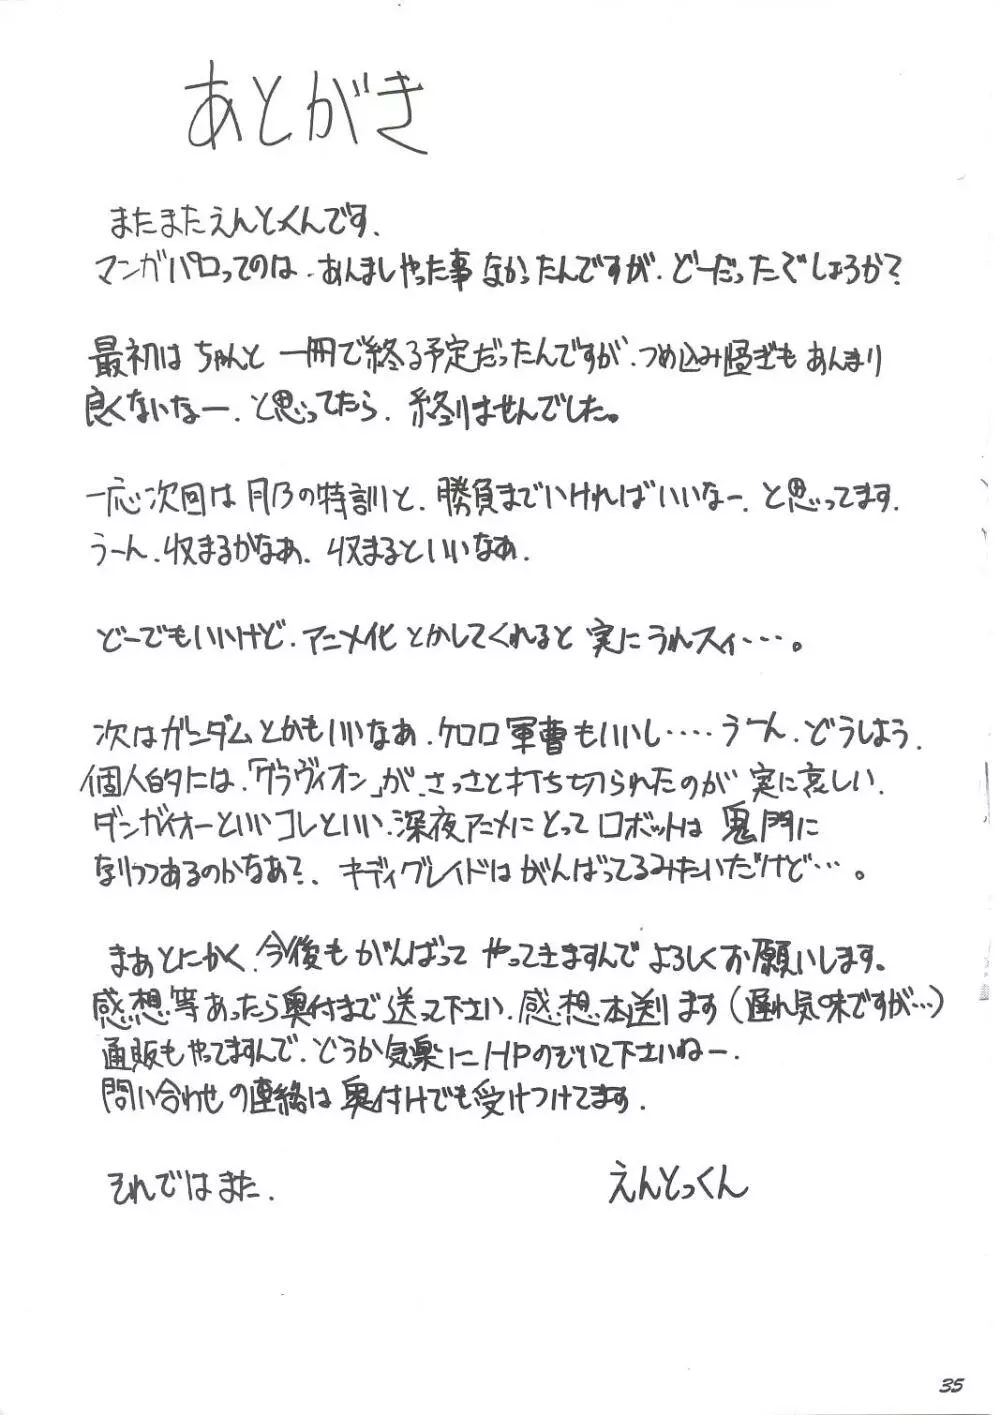 あとがき
またまたえんとくんです.
マンガパロってのは、あんましやった事なかったんですが、どーだったでしょうか?
最初はちゃんと一冊で終る予定だったんですが、つめ込み過ぎもあんまり
良くないなー、と思ってたら、終りませんでした。
一応次回は月乃の特訓と、勝負までいければいいなー、と思ってます.
うーん、収まるかなあ、収まるといいなあ.
どーでもいいけど、アニメ化とかしてくれると実にうれスィ・・・・。
次はガンダムとかもいいなあ、ケロロ軍曹もいいし・・・・うーん、どうしよう.
個人的には、「グラヴィオン」が、さっさと打ち切られたのが実に哀しい.
ダンガイオーといいコレといい、深夜アニメにとってロボットは鬼門に
なりつつあるのかなあ?、キディグレイドはがんばってるみたいだけど・・・。
まあとにかく、今後もがんばってやってきますんでよろしくお願いします。
感想等あったら奥付まで送って下さい、感想本送ります(遅れ気味ですが…)
通販もやってますんで、どうか気楽にHPのぞいて下さいねー.
問い合わせの連絡は奥付けでも受けつけてます.
それではまた.
えんとっくん
35